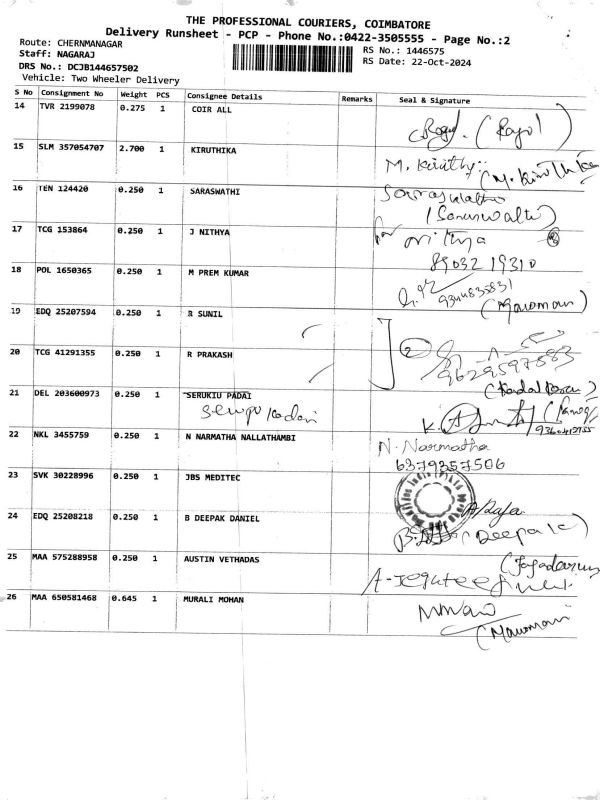 THE PROFESSIONAL COURIERS, COIMBATORE
Delivery Runsheet - PCP - Phone No.:0422-3505555 - Page No.:2
Route: CHERNMANAGAR
RS No.: 1446575
Staff: NAGARAJ
RS Date: 22-Oct-2024
DRS No.: DCJB144657502
Vehicle: Two Wheeler Delivery
S No Consignment No Weight PCS Consignee Details Remarks Seal & Signature
14 TVR 2199078 0.275 1 COIR ALL
15 SLM 357054707 2.700 1 KIRUTHIKA
M. Kiruthi
16 TEN 124420 0.250 1 SARASWATHI
17 TCG 153864 0.250 1 J NITHYA
for nithya
89032 19310
18 POL 1650365 0.250 1 M PREM KUMAR
9344835831
19 EDQ 25207594 0.250 1 R SUNIL
20 TCG 41291355 0.250 1 R PRAKASH
9629597883
21 DEL 203600973 0.250 1 SERUKIU PADAI
22 NKL 3455759 0.250 1 N NARMATHA NALLATHAMBI
N. Narmatha
6379357506
23 SVK 30228996 0.250 1 JBS MEDITEC
24 EDQ 25208218 0.250 1 B DEEPAK DANIEL
(Deepak)
25 MAA 575288958 0.250 1 AUSTIN VETHADAS
26 MAA 650581468 0.645 1 MURALI MOHAN